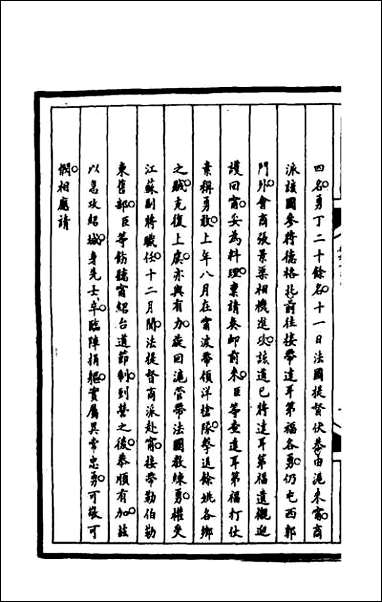 四名勇丁二十餘名十一日法國提督伏恭由滬來甯商
派該國參將德格托前往接帶達耳第福各勇仍屯西郭
門外會商張景渠相機進攻該道已將達耳第福遺櫬迎
護回甯妥為料理稟請奏卹前來臣等查達耳第福打仗
素稱勇敢上年八月在甯波帶領洋槍隊擊退餘姚各鄉
之賊克復上虞亦與有力旋回滬管帶法國教練勇權受
江蘇副將職任十二月間法提督商派赴甯接帶勒伯勒
東舊部臣等飭聽甯紹台道節制到營之後恭順有加茲
以急攻紹城身先士卒臨陣捐軀實屬異常忠勇可敬可
憫相應請